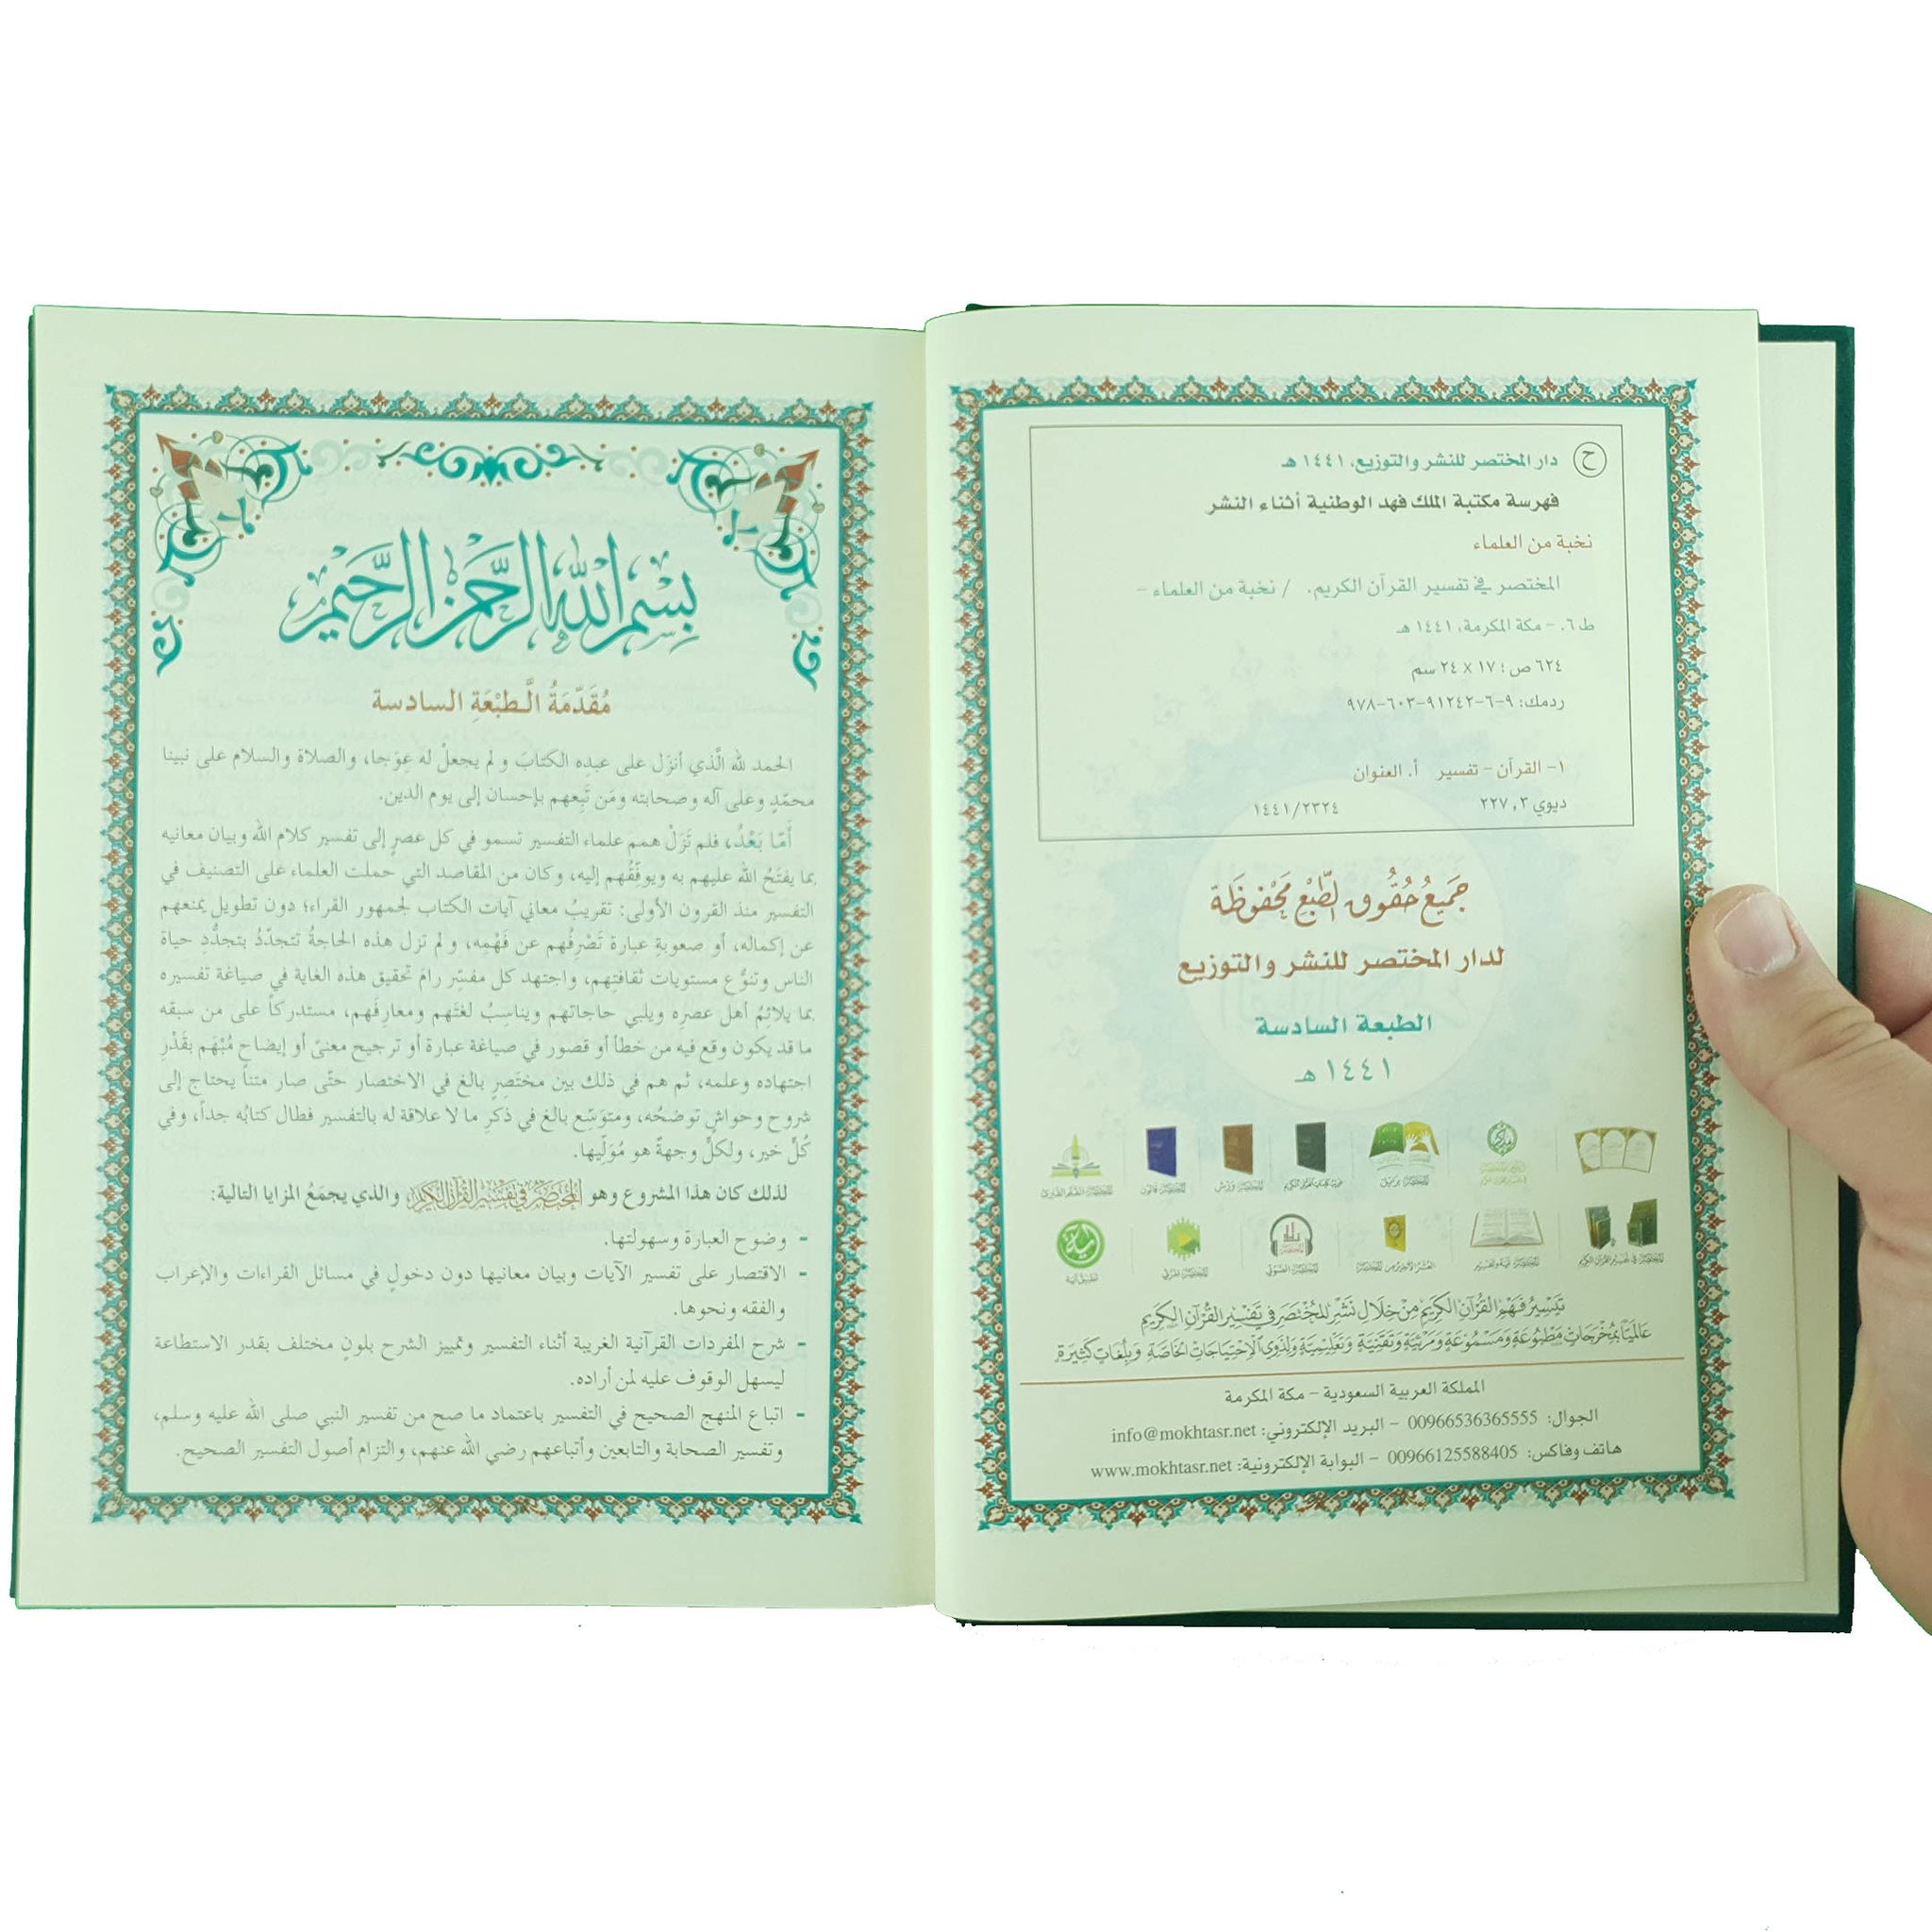 ح دار المختصر للنشر والتوزيع، ١٤٤١ هـ
فهرسة مكتبة الملك فهد الوطنية أثناء النشر
نخبة من العلماء
المختصر في تفسير القرآن الكريم. / نخبة من العلماء -
ط ٦. - مكة المكرمة، ١٤٤١ هـ
٦٢٤ ص؛ ١٧ × ٢٤ سم
ردمك: ٩-٦-٩١٢٤٢-٦٠٣-٩٧٨
١- القرآن - تفسير أ. العنوان
ديوي ٢٢٧,٣ ١٤٤١/٢٣٢٤
جَمِيعُ حُقُوقِ الطَّبْعِ مَحْفُوظَة
لدار المختصر للنشر والتوزيع
الطبعة السادسة
١٤٤١ هـ
تَيْسِيرُ فَهْمِ القُرْآنِ الكَرِيمِ مِنْ خِلَالِ نَشْرِ المُخْتَصَرِ فِي تَفْسِيرِ القُرْآنِ الكَرِيمِ
عَالَمِيًّا بِمُخْرَجَاتٍ مَطْبُوعَةٍ وَمَسْمُوعَةٍ وَمَرْئِيَّةٍ وَتَقْنِيَّةٍ وَتَعْلِيمِيَّةٍ وَلِذَوِي الِاحْتِيَاجَاتِ الخَاصَّةِ وَبِلُغَاتٍ كَثِيرَةٍ
المملكة العربية السعودية - مكة المكرمة
الجوال: 00966536365555 - البريد الإلكتروني: info@mokhtasr.net
هاتف وفاكس: 00966125588405 - البوابة الإلكترونية: www.mokhtasr.net
بِسْمِ اللَّهِ الرَّحْمَنِ الرَّحِيمِ
مُقَدِّمَةُ الطَّبْعَةِ السادسة
الحمد لله الَّذي أنزَل على عبدِه الكتابَ ولم يجعلْ له عِوَجا، والصلاة والسلام على نبينا
محمّدٍ وعلى آله وصحابته ومَن تَبِعهم بإحسان إلى يوم الدين.
أَمَّا بَعْدُ، فلم تَزَلْ همم علماء التفسير تسمو في كل عصرٍ إلى تفسير كلام الله وبيان معانيه
بما يفتَحُ الله عليهم به ويوفِّقُهم إليه، وكان من المقاصد التي حملت العلماء على التصنيف في
التفسير منذ القرون الأولى: تقريبُ معاني آيات الكتاب لجمهور القراء؛ دون تطويل يمنعهم
عن إكماله، أو صعوبةِ عبارة تَصْرِفُهم عن فَهْمِه، ولم تزل هذه الحاجةُ تتجدّدُ بتجدُّدِ حياة
الناس وتنوُّع مستويات ثقافتهم، واجتهد كل مفسِّر رامَ تحقيق هذه الغاية في صياغة تفسيره
بما يلائِمُ أهل عصرِه ويلبي حاجاتهم ويناسِبُ لغتَهم ومعارِفَهم، مستدركاً على من سبقه
ما قد يكون وقع فيه من خطأ أو قصور في صياغة عبارة أو ترجيح معنىً أو إيضاحِ مُبْهَم بقَدْرِ
اجتهاده وعلمه، ثم هم في ذلك بين مختَصِرٍ بالغ في الاختصار حتّى صار متناً يحتاج إلى
شروح وحواشٍ توضحُه، ومتوَسِّع بالغ في ذكرِ ما لا علاقة له بالتفسير فطال كتابُه جداً، وفي
كُلٍّ خير، ولكلٍّ وجهةٌ هو مُوَلِّيها.
لذلك كان هذا المشروع وهو المُخْتَصَرُ فِي تَفْسِيرِ القُرْآنِ الكَرِيمِ، والذي يجمَعُ المزايا التالية:
- وضوح العبارة وسهولتها.
- الاقتصار على تفسير الآيات وبيان معانيها دون دخولٍ في مسائل القراءات والإعراب
والفقه ونحوها.
- شرح المفردات القرآنية الغريبة أثناء التفسير وتمييز الشرح بلونٍ مختلف بقدر الاستطاعة
ليسهل الوقوف عليه لمن أراده.
- اتباع المنهج الصحيح في التفسير باعتماد ما صح من تفسير النبي صلى الله عليه وسلم،
وتفسير الصحابة والتابعين وأتباعهم رضي الله عنهم، والتزام أصول التفسير الصحيح.